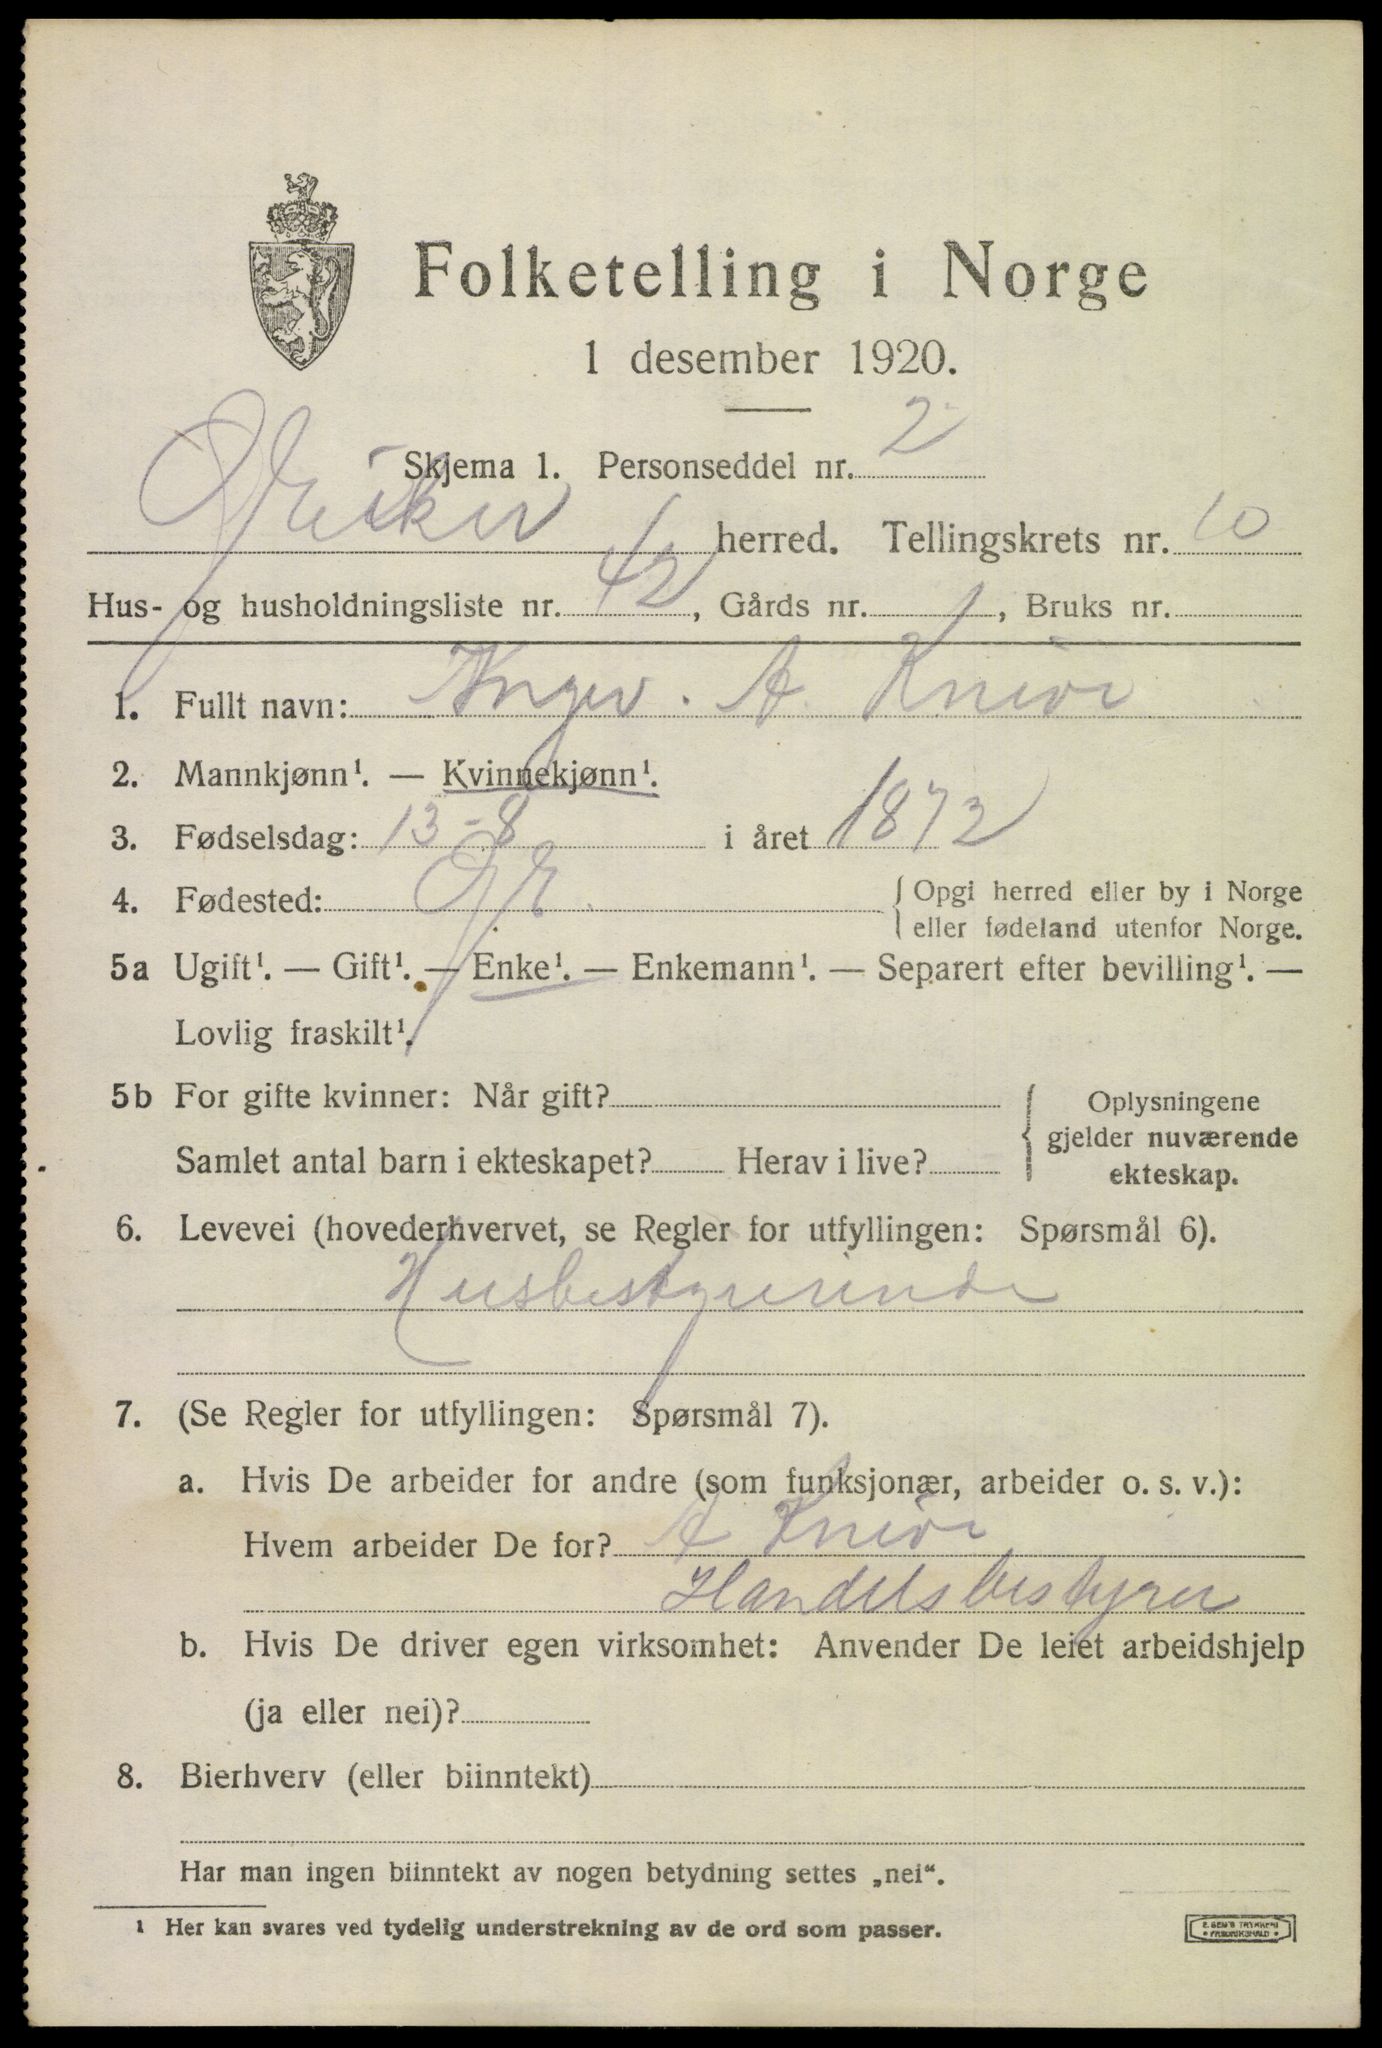 Folketelling i Norge
1 desember 1920.
Skjema 1. Personseddel nr. 2
Ø Eiker herred. Tellingskrets nr. 10
Hus- og husholdningsliste nr. 42, Gårds nr. 1, Bruks nr.
1. Fullt navn: Inger. A. Knive
2. Mannkjønn¹. — Kvinnekjønn¹.
3. Fødselsdag: 13-8 i året 1872
4. Fødested: Ø E. { Opgi herred eller by i Norge
eller fødeland utenfor Norge.
5a Ugift¹. — Gift¹. — Enke¹. — Enkemann¹. — Separert efter bevilling¹. —
Lovlig fraskilt¹.
5b For gifte kvinner: Når gift?
Samlet antal barn i ekteskapet? Herav i live?
Oplysningene
gjelder nuværende
ekteskap.
6. Levevei (hovederhvervet, se Regler for utfyllingen: Spørsmål 6).
Husbestyrerinde
7. (Se Regler for utfyllingen: Spørsmål 7).
a. Hvis De arbeider for andre (som funksjonær, arbeider o. s. v.):
Hvem arbeider De for? A Knive
Handelsbestyrer
b. Hvis De driver egen virksomhet: Anvender De leiet arbeidshjelp
(ja eller nei)?
8. Bierhverv (eller biinntekt)
Har man ingen biinntekt av nogen betydning settes „nei“.
¹ Her kan svares ved tydelig understrekning av de ord som passer.
E. SEM'S TRYKKERI
• FREDRIKSHALD •